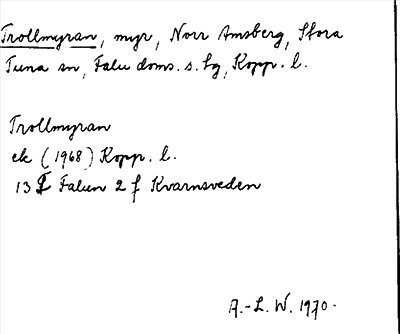 Trollmyran, myr, Norr Amsberg, Stora
Tuna sn, Falu doms. s. tg, Kopp. l.
Trollmyran
ek (1968) Kopp. l.
13 F Falun 2 f Kvarnsveden
A.-L. W. 1970.